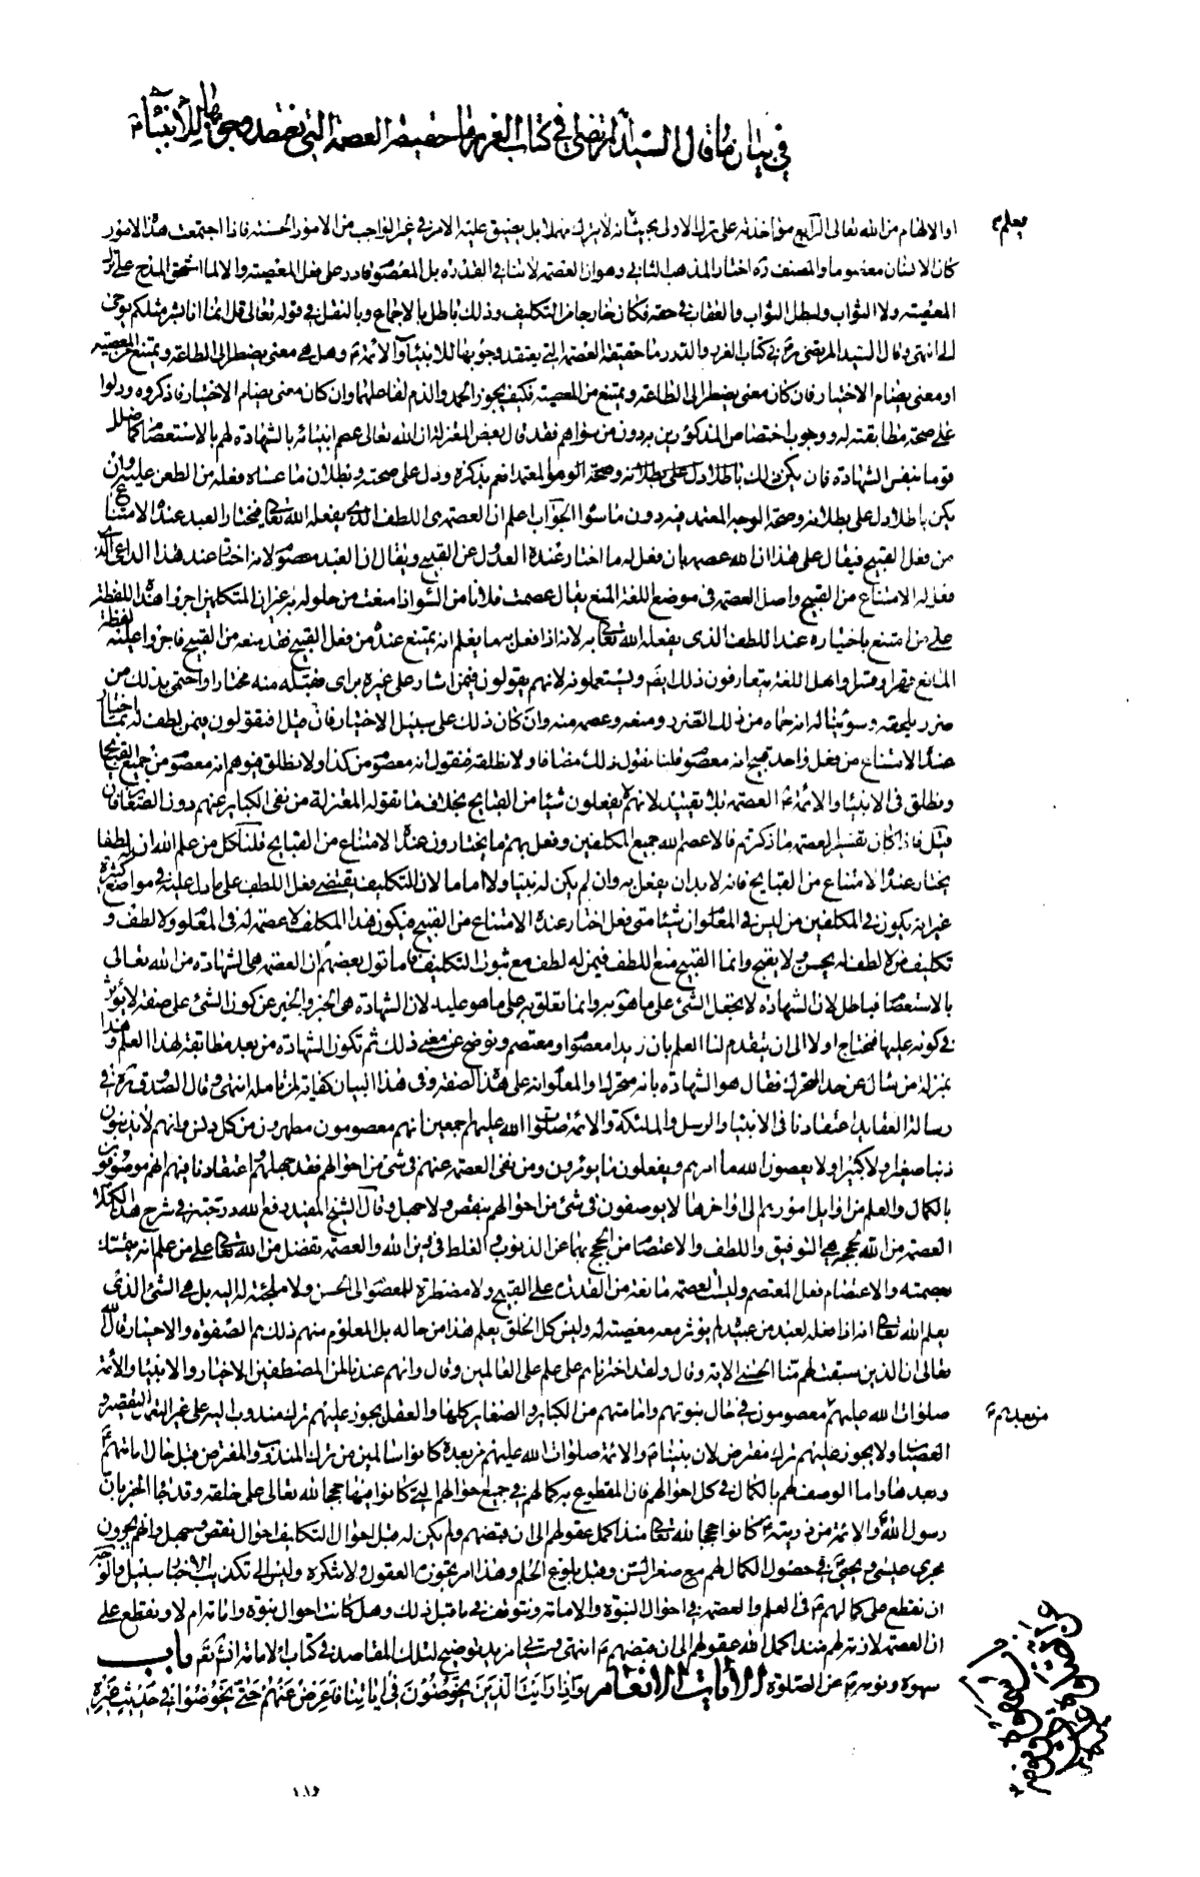 في بيان ما قال السيد المرتضى في كتاب الغرر ما حقيقة العصمة التي نعتقد وجوبها للأنبياء
او الالهام من الله تعالى الرابع مؤاخذته على ترك الاولى بحيث انه لا يترك مهملا بل يضيق عليه الامر في غير الواجب من الامور الحسنة فاذا اجتمعت هذه الامور
يعلم
كان الانسان معصوما والمصنف ره اختار المذهب الثاني وهو ان العصمة لا تنافي القدرة بل المعصوم قادر على فعل المعصية والا لما استحق المدح على ترك
المعصية ولا الثواب ولبطل الثواب والعقاب في حقه فكان خارجا من التكليف وذلك باطل بالاجماع وبالنقل في قوله تعالى قل انما انا بشر مثلكم يوحى
الى انتهى وقال السيد المرتضى ره في كتاب الغرر والدرر ما حقيقة العصمة التي يعتقد وجوبها للانبياء والائمة ع وهل هي معنى يضطر الى الطاعة ويمنع من المعصية
او معنى يضام الاختيار فان كان معنى يضطر الى الطاعة ويمتنع من المعصية فكيف يجوز الحمد والذم لفاعلهما وان كان معنى يضام الاختيار فاذكروه ودلوا
على صحة مطابقته له ووجوب اختصاص المذكورين به دون من سواهم فقد قال بعض المعتزلة ان الله تعالى عصم انبيائه بالشهادة لهم بالاستعصام كما ضلل
قوما بنفس الشهادة فان يكن ذلك باطلا دل على بطلانه وصحة الوجه المعتمد فيه دون ما سواه
يكن باطلا دل على بطلانه وصحة الوجه المعتمد فيه دون ما سواه الجواب اعلم ان العصمة هي اللطف الذي يفعله الله تعالى فيختار العبد عنده الامتناع
من فعل القبيح فيقال على هذا ان الله عصمه بان فعل له ما اختار عنده العدول عن القبيح ويقال ان العبد معصوم لانه اختار عند هذا الداعي الذي
فعل له الامتناع من القبيح واصل العصمة في موضع اللغة المنع يقال عصمت فلانا من السوء اذا منعت من حلوله به غير ان المتكلمين اجروا هذه اللفظة
على من امتنع باختياره عند اللطف الذي يفعله الله تعالى به لانه اذا فعل به ما يعلم انه يمتنع عنده من فعل القبيح فقد منعه من القبيح فاجروا عليه لفظة
المانع قهرا وقسرا واهل اللغة يتعارفون ذلك ايضا ويستعملونه لانهم يقولون فيمن اشار على غيره براى فقبله منه مختارا واحتمى بذلك من
ضرر يلحقه وسوء يناله انه حماه من ذلك الضرر ومنعه وعصمه منه وان كان ذلك على سبيل الاختيار فان قيل افتقولون فيمن لطف له بما اختار
عنده الامتناع من فعل واحد قبيح انه معصوم قلنا نقول ذلك مضافا ولا نطلقه فنقول انه معصوم من كذا ولا نطلق فيوهم انه معصوم من جميع القبايح
ونطلق في الانبياء والائمة ع العصمة بلا تقييد لانهم لا يفعلون شيئا من القبايح بخلاف ما تقوله المعتزلة من نفى الكباير عنهم دون الصغاير فان
قيل فاذا كان تفسير العصمة ما ذكرتم فالا عصم الله جميع المكلفين وفعل بهم ما يختارون عنده الامتناع من القبايح قلنا كل من علم الله ان له لطفا
يختار عنده الامتناع من القبايح فانه لا بد ان يفعل به وان لم يكن له نبيا ولا اماما لان التكليف يقتضي فعل اللطف على ما دل عليه في مواضع كثيرة
غير انه يكون في المكلفين من ليس في المعلوم ان شيئا متى فعل اختار عنده الامتناع من القبيح فيكون هذا المكلف لا عصمة له في المعلوم ولا لطف و
تكليف من لا لطف له يحسن ولا يقبح وانما القبيح منع اللطف فيمن له لطف مع ثبوت التكليف فاما قول بعضهم ان العصمة هي الشهادة من الله تعالى
بالاستعصام فباطل لان الشهادة لا يجعل الشئ على ما هو به وانما تتعلق به على ما هو عليه لان الشهادة هي الخبر والخبر عن كون الشئ على صفة لا يؤثر
في كونه عليها فنحتاج اولا الى ان يتقدم لنا العلم بان زيدا معصوم او معتصم ويوضح عن معنى ذلك ثم تكون الشهادة من بعد مطابقة لهذا العلم وهذا
بمنزلة من سأل عن حد المتحرك فقال هو الشهادة بانه متحرك او المعلوم انه على هذه الصفة وفي هذا البيان كفاية لمن تامله انتهى وقال الصدوق ره في
رسالة العقايد اعتقادنا في الانبياء والرسل والملئكة والائمة صلوات الله عليهم اجمعين انهم معصومون مطهرون من كل دنس وانهم لا يذنبون
ذنبا صغيرا ولا كبيرا ولا يعصون الله ما امرهم ويفعلون ما يؤمرون ومن نفى العصمة عنهم في شئ من احوالهم فقد جهلهم واعتقادنا فيهم انهم موصوفون
بالكمال والعلم من اوايل امورهم الى اواخرها لا يوصفون في شئ من احوالهم بنقص ولا جهل وقال الشيخ المفيد رفع الله درجته في شرح هذا الكلام
العصمة من الله لحججه هي التوفيق واللطف والاعتصام من الحجج بها عن الذنوب والغلط في دين الله والعصمة تفضل من الله تعالى على من علم انه يتمسك
بعصمته والاعتصام فعل المعتصم وليست العصمة مانعة من القدرة على القبيح ولا مضطرة للمعصوم الى الحسن ولا ملجئة له اليه بل هي الشئ الذي
يعلم الله تعالى انه اذا فعله لعبد من عبيده لم يؤثر معه معصيته له وليس كل الخلق يعلم هذا من حاله بل المعلوم منهم ذلك هم الصفوة والاخيار قال الله
تعالى ان الذين سبقت لهم منا الحسنى الاية وقال ولقد اخترناهم على علم على العالمين وقال وانهم عندنا لمن المصطفين الاخيار والانبياء والائمة
صلوات الله عليهم معصومون في حال نبوتهم وامامتهم من الكباير والصغاير كلها والعقل يجوز عليهم ترك مندوب اليه على غير التعمد للتقصير و
من بعدهم
العصيان ولا يجوز عليهم ترك مفترض الا ان نبينا ص والائمة صلوات الله عليهم من بعده كانوا سالمين من ترك المندوب والمفترض قبل حال امامتهم
وبعدها واما الوصف لهم بالكمال في كل احوالهم فان المقطوع به كمالهم في جميع احوالهم التي كانوا فيها حججا لله تعالى على خلقه وقد جاء الخبر بان
رسول الله والائمة من ذريته كانوا حججا لله تعالى منذ اكمل عقولهم الى ان قبضهم ولم يكن لهم قبل احوال التكليف احوال نقص وجهل وانهم يجرون
مجرى عيسى ويحيى في حصول الكمال لهم مع صغر السن وقبل بلوغ الحلم وهذا امر تجوزه العقول ولا تنكره وليس الى تكذيب الاخبار سبيل والوجه
ان نقطع على كمالهم ع في العلم والعصمة في احوال النبوة والامامة ونتوقف في ما قبل ذلك وهل كانت احوال نبوة وامامة ام لا ونقطع على
ان العصمة لازمة لهم منذ اكمل الله عقولهم الى ان قبضهم ع انتهى وسيأتي مزيد توضيح لتلك المقاصد في كتاب الامامة انشاء الله تعالى باب
سهوه ونومه ص عن الصلوة الآيات الانعام واذا رايت الذين يخوضون في اياتنا فاعرض عنهم حتى يخوضوا في حديث غيره